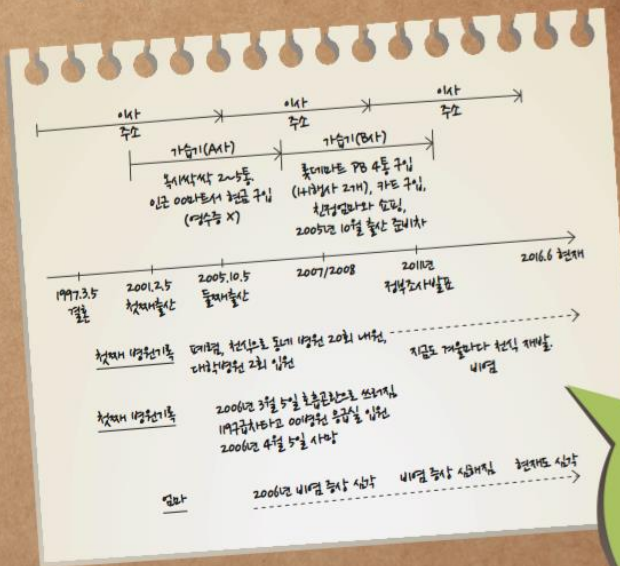 이사 이사 이사
주소 주소 주소
가습기(A사) 가습기(B사)
옥시싹싹 2~5통.
인근 00마트서 현금 구입
(영수증 X)
롯데마트 PB 4통 구입
(1+1행사 2개), 카드 구입,
친정엄마와 쇼핑,
2005년 10월 출산 준비차
1997.3.5
결혼
2001.2.5
첫째출산
2005.10.5
둘째출산
2007/2008
2011년
정부조사발표
2016.6 현재
첫째 병원기록
폐렴, 천식으로 동네 병원 20회 내원,
대학병원 2회 입원
지금도 겨울마다 천식 재발.
비염
첫째 병원기록
2006년 3월 5일 호흡곤란으로 쓰러짐
119구급차타고 00병원 응급실 입원
2006년 4월 5일 사망
엄마
2006년 비염 증상 심각
비염 증상 심해짐
현재도 심각